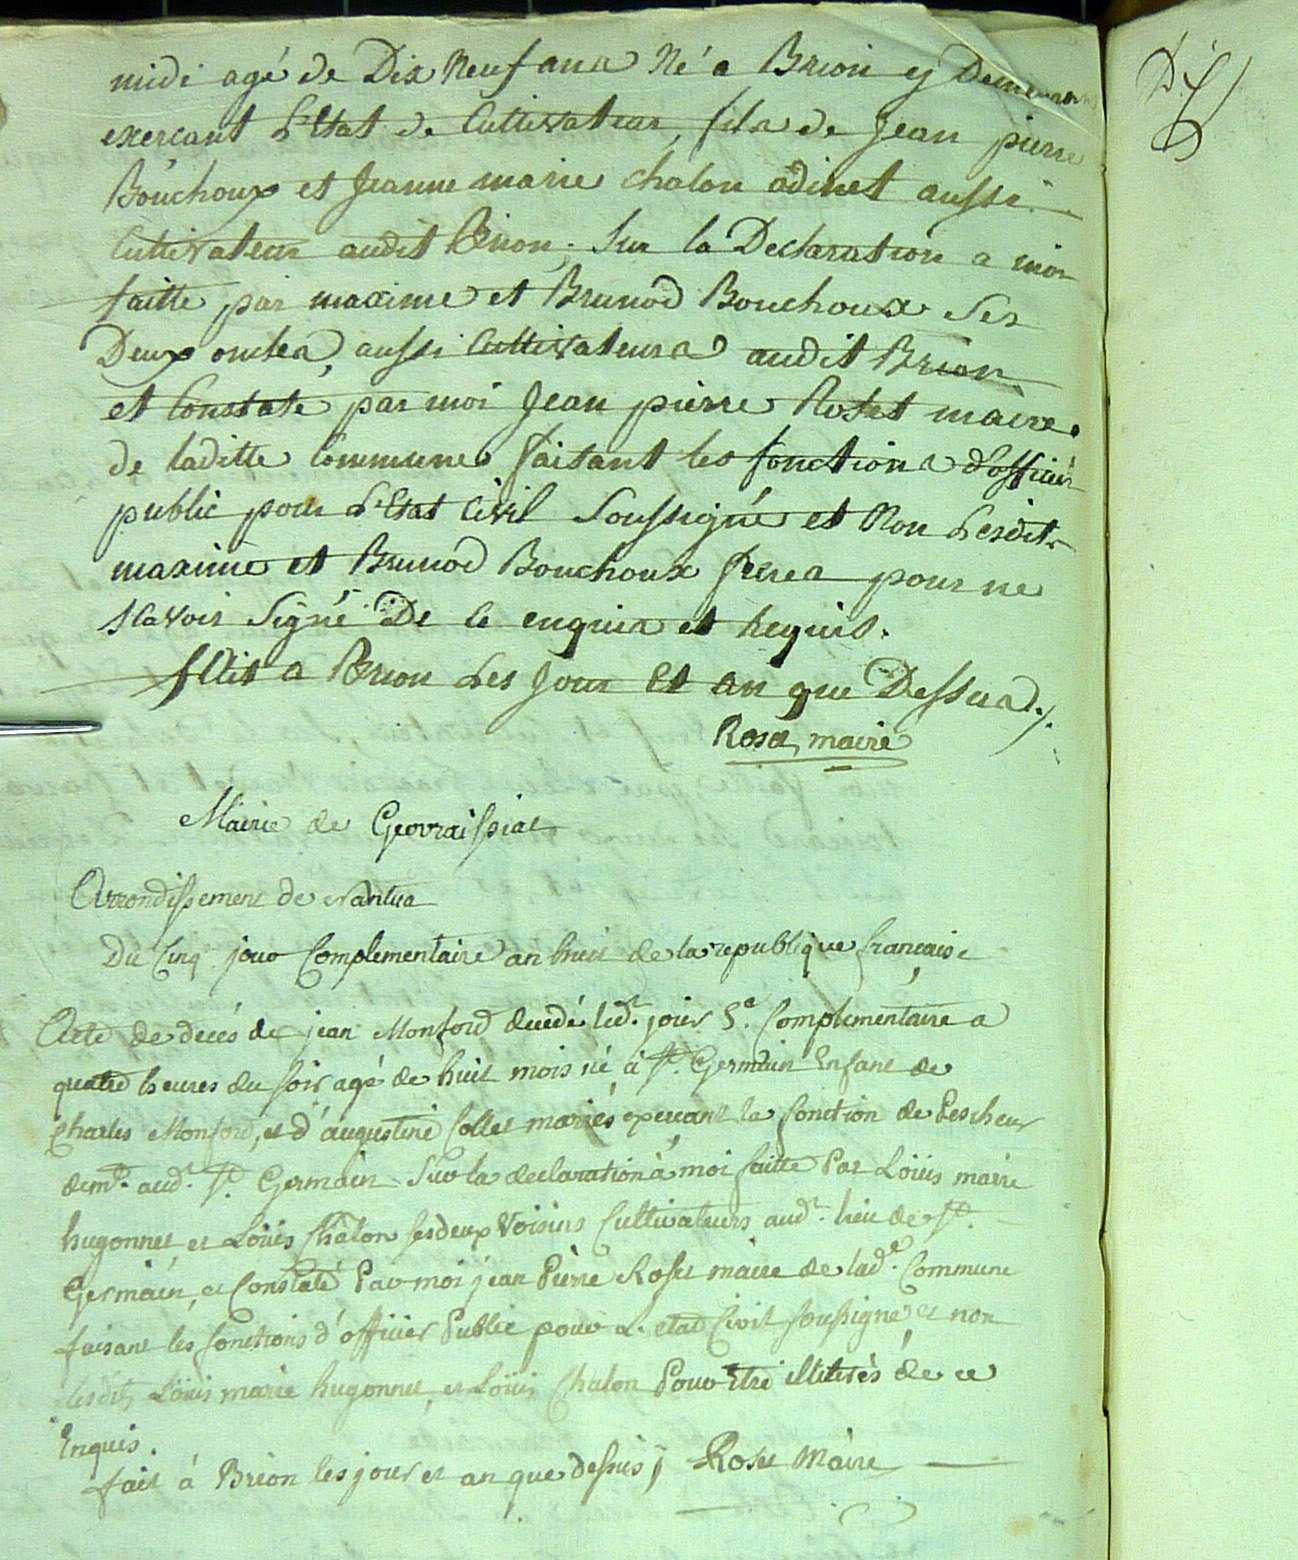 midi agé de Dix Neuf ans Né a Brion y Demeurant
exercant L'Etat de Cultivateur, fils de Jean pierre
Bouchoux et Jeanne marie chalon adinet aussi
Cultivateur audit Brion, Sur la Declaration a moi
faitte par maxime et Brunod Bouchoux Ses
Deux oncles, aussi Cultivateurs audit Brion
et Constaté par moi Jean pierre Roset maire
de laditte Commune faisant les fonctions d'officier
public pour L'Etat Civil Soussigné et Non Lesdits
maxime et Brunod Bouchoux freres pour ne
scavoir Signé De Ce enquis et Requis.
fait a Brion Les Jour Et an que Dessus
Roset, maire
Mairie de Geovraissiat
Arrondissement de Nantua
Du Cinq jour Complementaire an huit de la republique française
Acte de decés de jean Monford decedé led.t jour 5.e Complementaire a
quatre heures du soir agé de huit mois né à S.t Germain Enfant de
Charles Monford, et d'augustine Collet mariés exercant la fonction de Pescheur
dem.t aud.t S.t Germain Sur la declaration à moi faitte Par Loüis marie
hugonnet et Loüis Chalon ses deux Voisins Cultivateurs aud.t lieu de S.t
Germain, et Constaté Par moi jean Pierre Roset maire de lad.e Commune
faisant les fonctions d'officier Public pour L'etat Civil soussigné et non
lesdits Loüis marie hugonnet, et Loüis Chalon Pour Etre illiterés de ce
Enquis.
fait à Brion les jour et an que dessus, Roset Maire